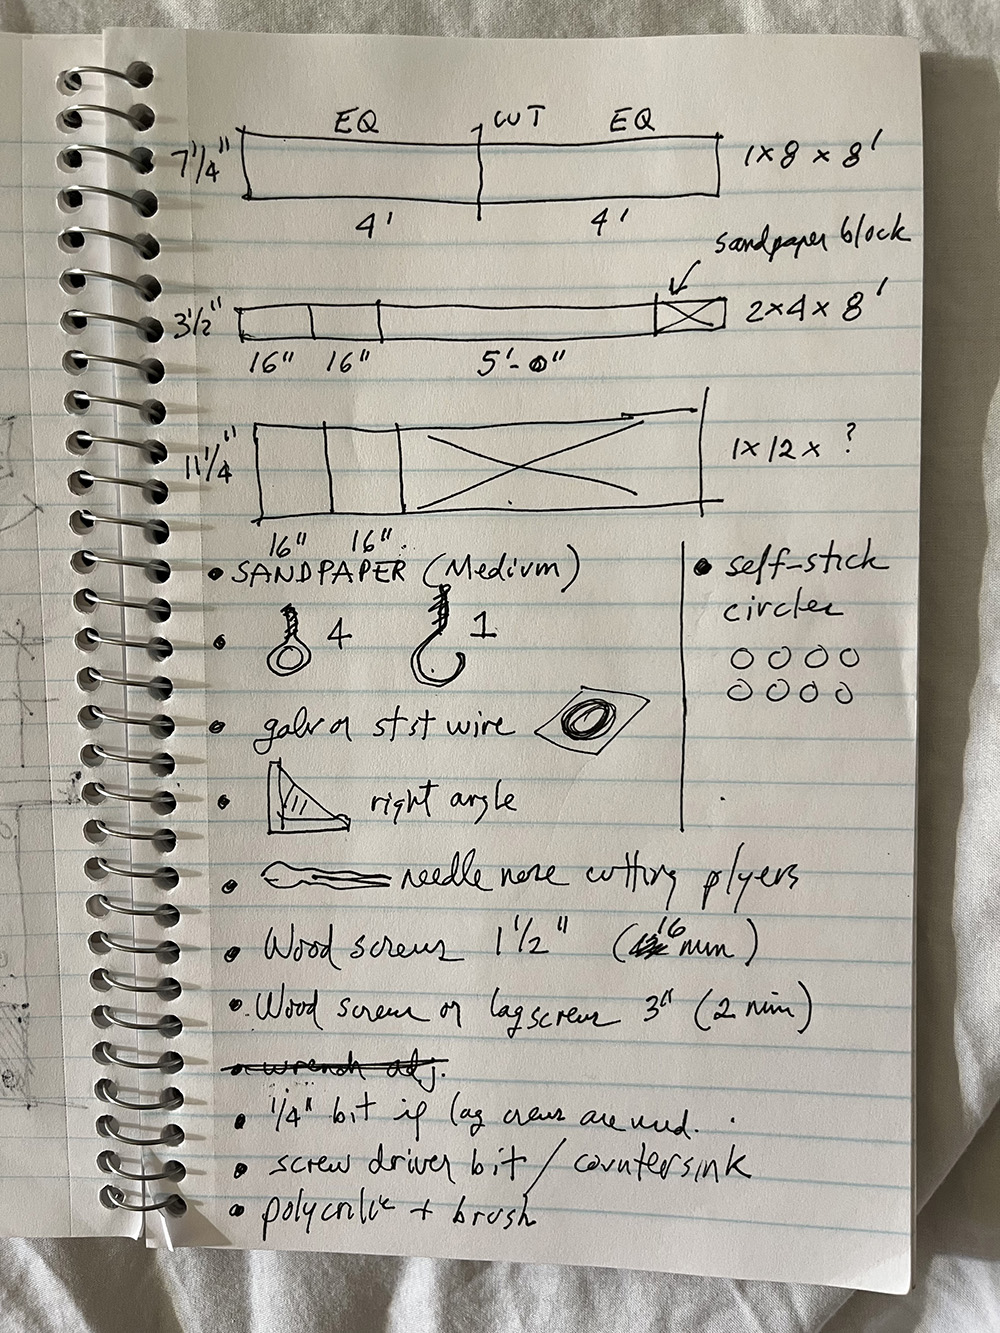 EQ CUT EQ
7 1/4" 1x8 x 8'
4' 4'
sandpaper block
3 1/2" 2x4x 8'
16" 16" 5'-0"
11 1/4" 1x12x ?
16" 16"
• SANDPAPER (Medium)
• 4 1
• galv or st st wire
• right angle
• self-stick
circles
• needle nose cutting plyers
• Wood screws 1 1/2" (16 min)
• Wood screw or lag screws 3" (2 min)
• wrench adj.
• 1/4" bit if lag screws are used.
• screw driver bit / countersink
• + brush